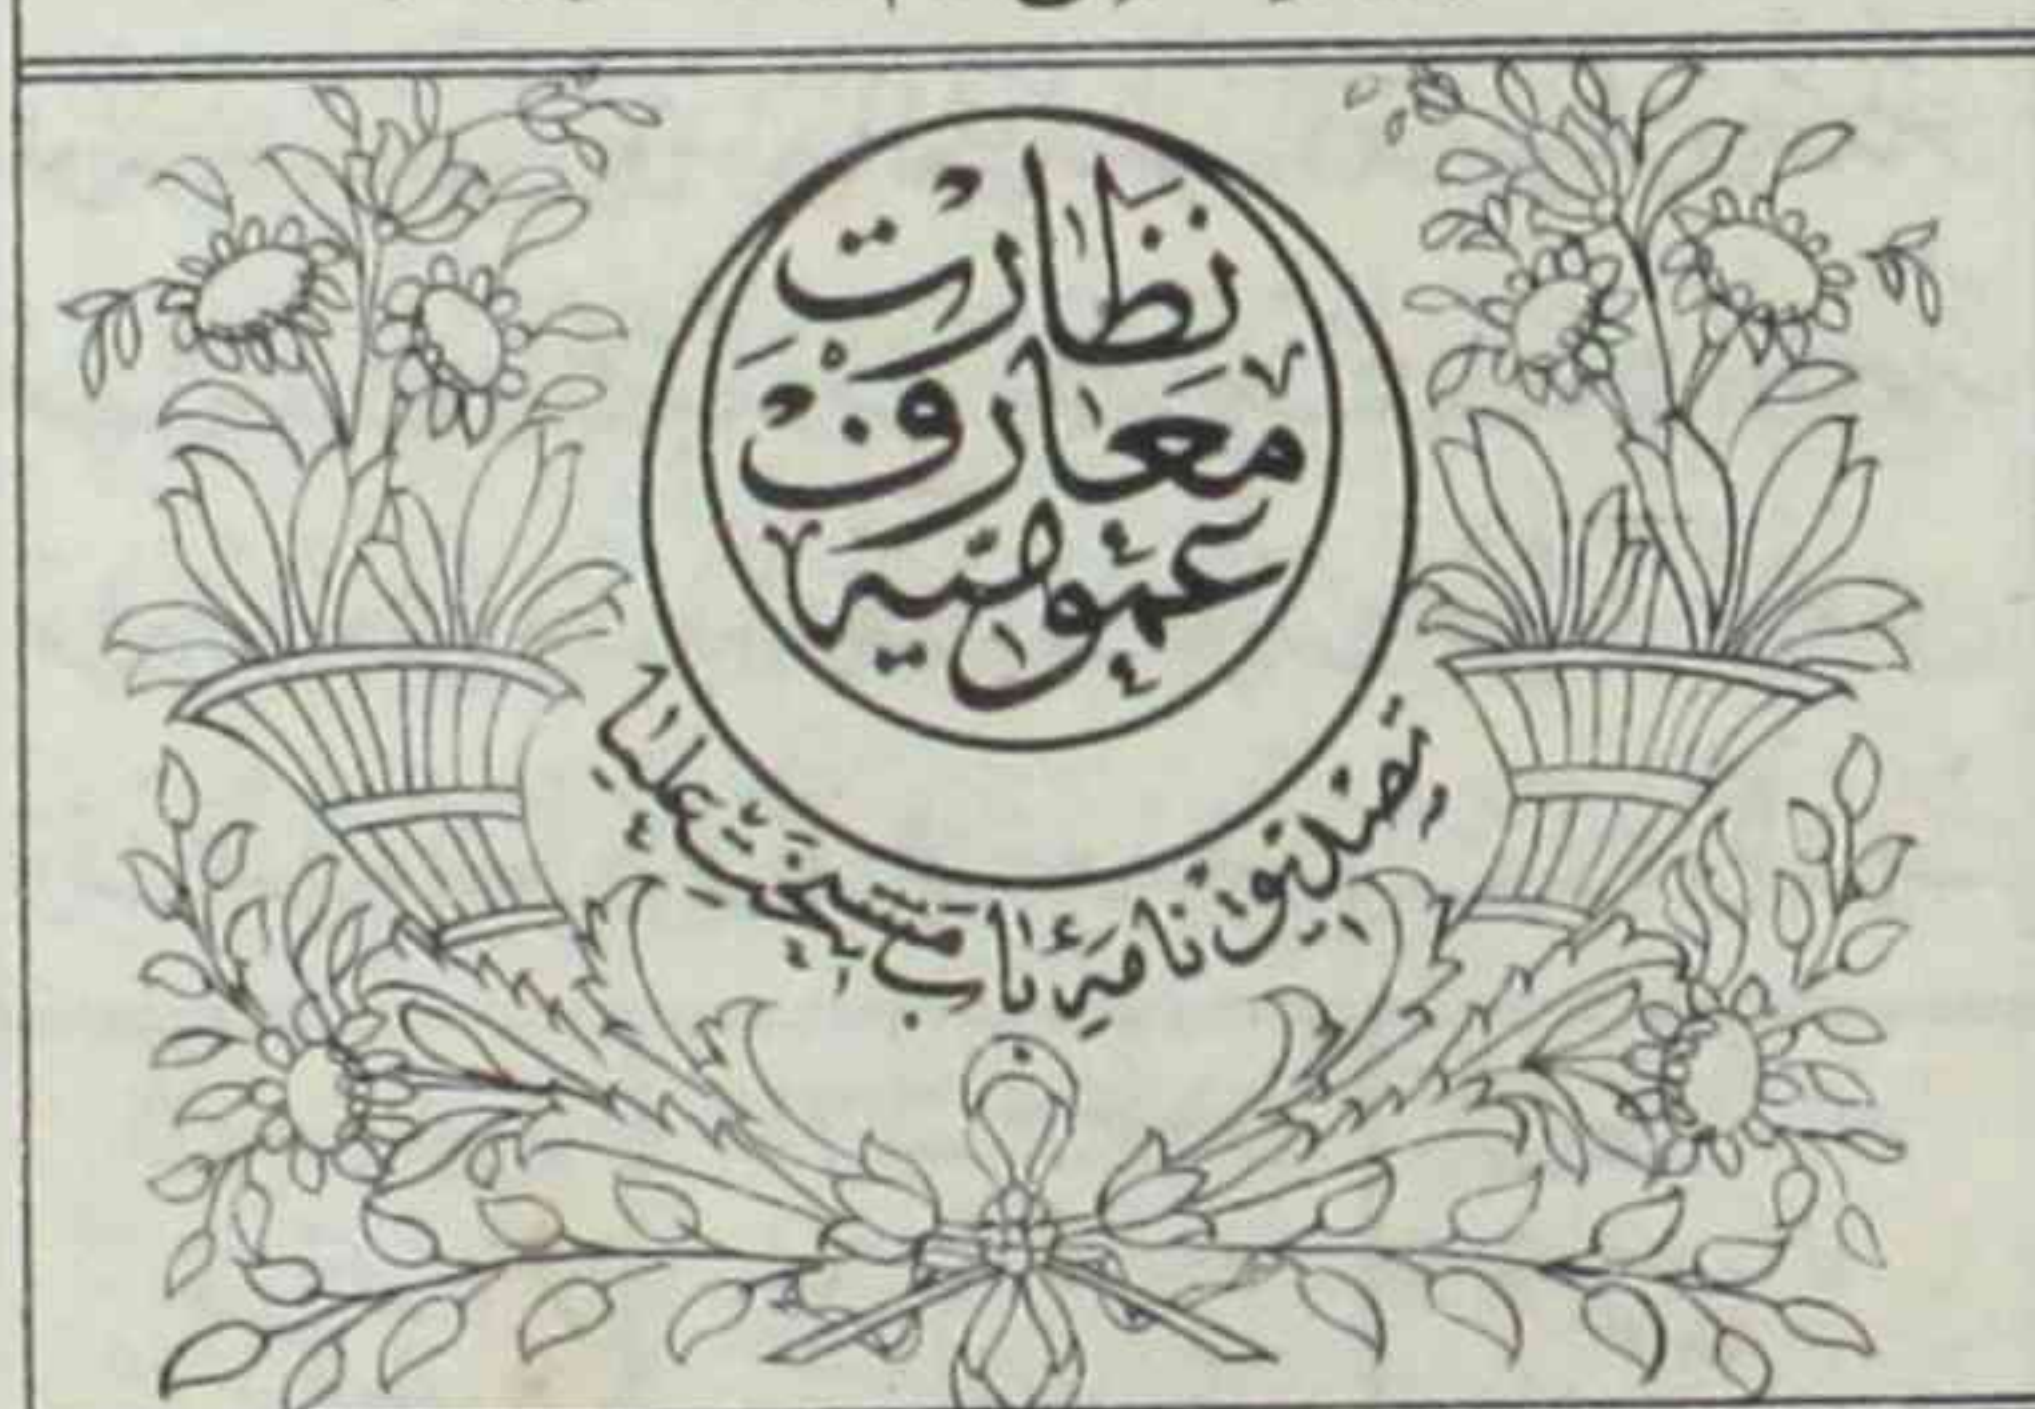 نظارت
معارف
عموميه
تصديقنامۀ باب مشيختعليا